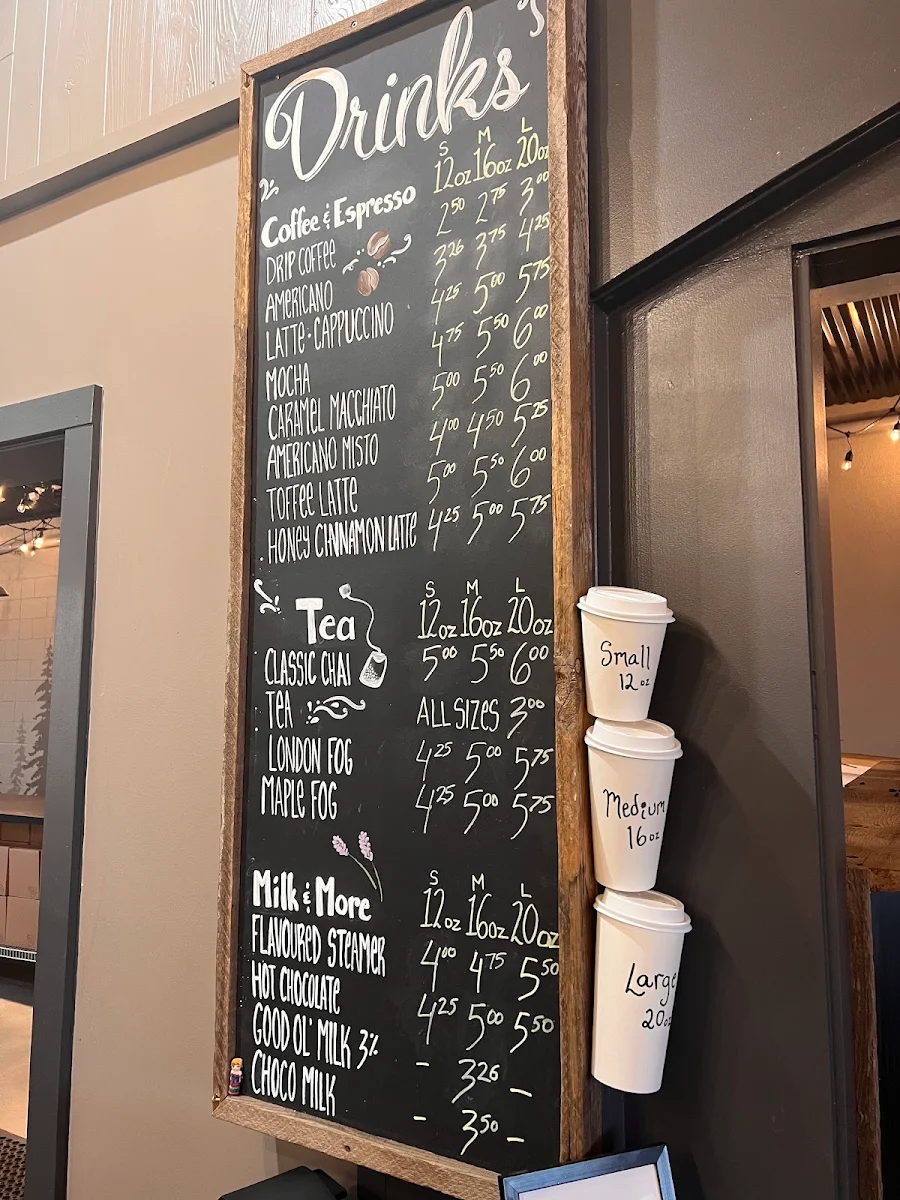 Drinks
S M L
12oz 16oz 20oz
Coffee & Espresso
DRIP COFFEE 2⁵⁰ 2⁷⁵ 3⁰⁰
AMERICANO 3²⁶ 3⁷⁵ 4²⁵
LATTE · CAPPUCCINO 4²⁵ 5⁰⁰ 5⁷⁵
MOCHA 4⁷⁵ 5⁵⁰ 6⁰⁰
CARAMEL MACCHIATO 5⁰⁰ 5⁵⁰ 6⁰⁰
AMERICANO MISTO 4⁰⁰ 4⁵⁰ 5²⁵
TOFFEE LATTE 5⁰⁰ 5⁵⁰ 6⁰⁰
HONEY CINNAMON LATTE 4²⁵ 5⁰⁰ 5⁷⁵
S M L
Tea 12oz 16oz 20oz
CLASSIC CHAI 5⁰⁰ 5⁵⁰ 6⁰⁰
TEA ALL SIZES 3⁰⁰
LONDON FOG 4²⁵ 5⁰⁰ 5⁷⁵
MAPLE FOG 4²⁵ 5⁰⁰ 5⁷⁵
S M L
Milk & More 12oz 16oz 20oz
FLAVOURED STEAMER 4⁰⁰ 4⁷⁵ 5⁵⁰
HOT CHOCOLATE 4²⁵ 5⁰⁰ 5⁵⁰
GOOD OL' MILK 3% – 3²⁶ –
CHOCO MILK – 3⁵⁰ –
Small
12oz
Medium
16oz
Large
20oz